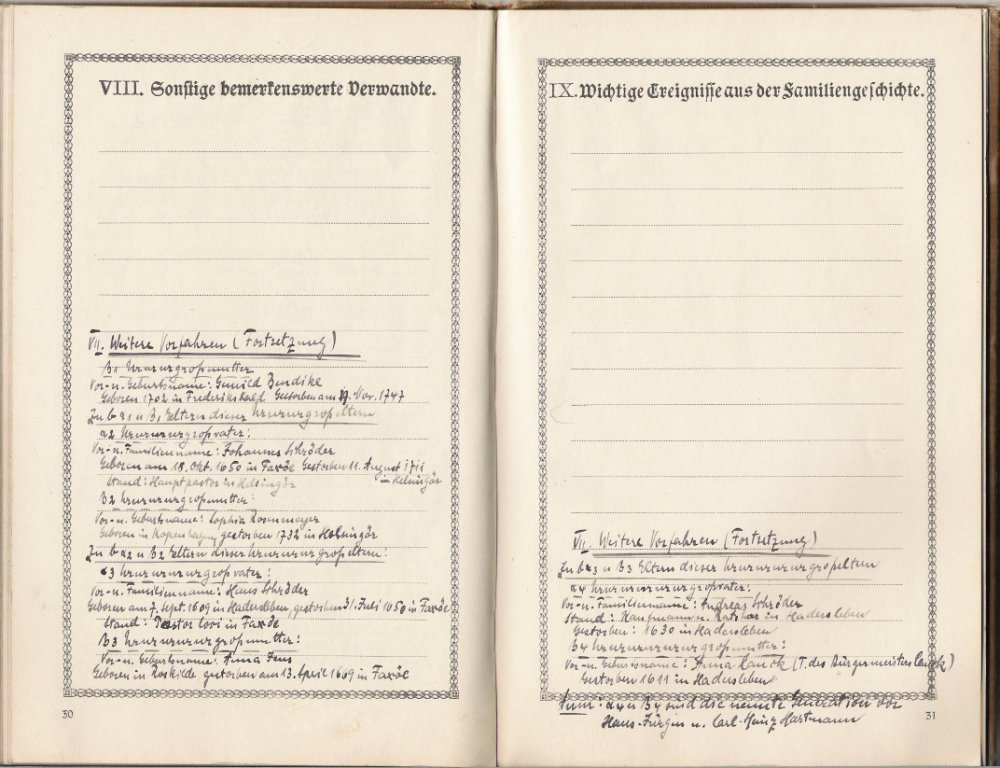 VIII. Sonstige bemerkenswerte Verwandte.
VII. Weitere Vorfahren (Fortsetzung)
B1 Urururgroßmutter
Vor- u. Geburtsname: Gunild Bendike
Geboren 1702 in Frederikshald Gestorben am Nov. 1747
Zu b α1 u B1 Eltern dieser Urururgroßeltern
α2 Urururgroßvater:
Vor- u. Familienname: Johannes Schröder
Geboren am 18. Okt. 1650 in Faxöe Gestorben 11. August 1711
Stand: Hauptpastor in Helsingör in Helsingör
B2 Urururgroßmutter:
Vor- u. Geburtsname: Sophia Rosenmeyer
Geboren in Kopenhagen gestorben 1732 in Helsingör
Zu b α2 u B2 Eltern dieser Urururgroßeltern:
α3 Ururururgroßvater:
Vor- u. Familienname: Hans Schröder
Geboren am 7. Sept. 1609 in Hadersleben, gestorben 31. Juli 1650 in Faxöe
Stand: Pastor loci in Faxöe
B3 Ururururgroßmutter:
Vor- u. Geburtsname: Anna Jens
Geboren in Roskilde gestorben am 13. April 1669 in Faxöe
30
IX. Wichtige Ereignisse aus der Familiengeschichte.
VII. Weitere Vorfahren (Fortsetzung)
Zu b α3 u B3 Eltern dieser Ururururgroßeltern
α4 Urururururgroßvater:
Vor- u. Familienname: Andreas Schröder
Stand: Kaufmann u. Ratsherr in Hadersleben
Gestorben: 1630 in Hadersleben
B4 Urururururgroßmutter:
Vor- u. Geburtsname: Anna Lanck (T. des Bürgermeisters Lanck)
Gestorben 1611 in Hadersleben
α4 u B4 sind die neunte Generation vor
Hans-Jürgen u. Carl-Heinz Hartmann
31